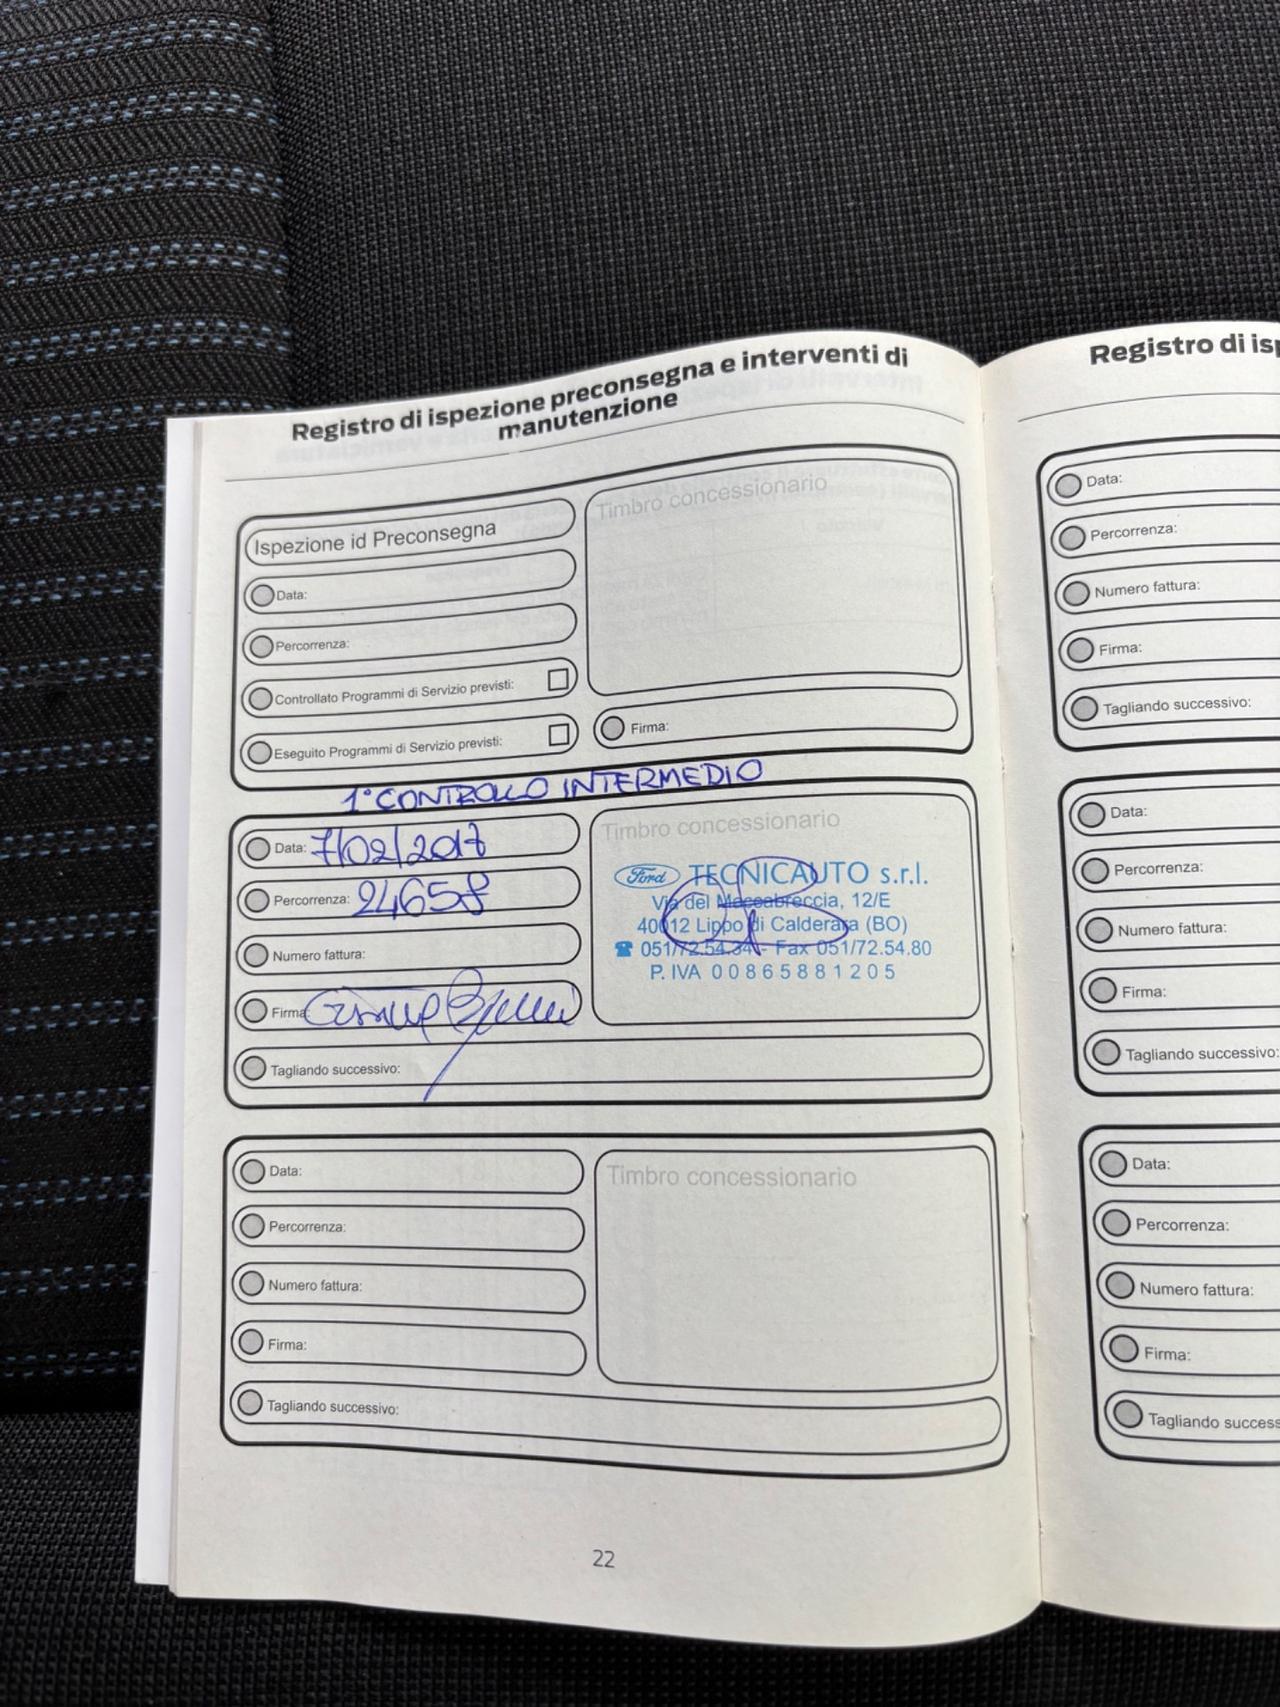 Registro di ispezione preconsegna e interventi di
manutenzione
Ispezione id Preconsegna
Data:
Percorrenza:
Controllato Programmi di Servizio previsti:
Eseguito Programmi di Servizio previsti:
Timbro concessionario
Firma:
1° CONTROLLO INTERMEDIO
Data: 7/02/2017
Percorrenza: 24658
Numero fattura:
Firma:
Tagliando successivo:
Timbro concessionario
Ford TECNICAUTO s.r.l.
Via del Maccabreccia, 12/E
40012 Lippo di Calderara (BO)
051/72.54.34 - Fax 051/72.54.80
P. IVA 00865881205
Data:
Percorrenza:
Numero fattura:
Firma:
Tagliando successivo:
Timbro concessionario
22
Registro di isp
Data:
Percorrenza:
Numero fattura:
Firma:
Tagliando successivo:
Data:
Percorrenza:
Numero fattura:
Firma:
Tagliando successivo:
Data:
Percorrenza:
Numero fattura:
Firma:
Tagliando success